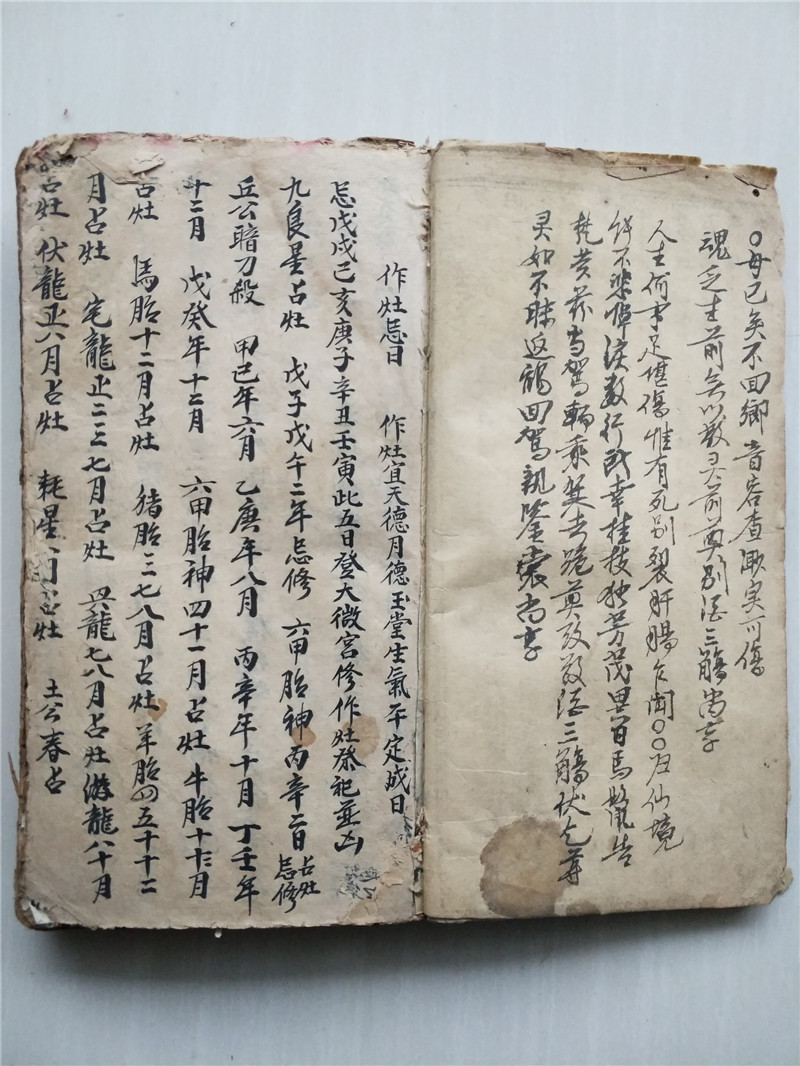 〇母已矣不回鄉音容查〇実可傷
魂乏生前無以献灵前奠别酒三觴尚享
人生何事足堪傷惟有死别裂肝腸乍聞〇〇归仙境
不禁悼淚数行 幸桂枝独芳茂 百馬 告
尚駕輛乘 去跪奠 致酒三觴伏乞尊
灵如不昧返鶴回駕親鉴裳尚享
作灶忌日 作灶宜天德月德玉堂生氣平定成日
忌戊戌己亥庚子辛丑壬寅此五日登大微宮修作灶祭祀並凶
九良星占灶 戊子戊午二年忌修 六甲胎神丙辛二日占灶忌修
丘公暗刀殺 甲己年六月 乙庚年八月 丙辛年十月 丁壬年
十二月 戊癸年十二月 六甲胎神四十一月占灶 牛胎十十二月
占灶 馬胎十二月占灶 猪胎三七八月占灶 羊胎四五十十二
月占灶 宅龍正二三七月占灶 龍七八月占灶 游龍八十月
占灶 伏龍正六月占灶 耗星 月占灶 土公春占